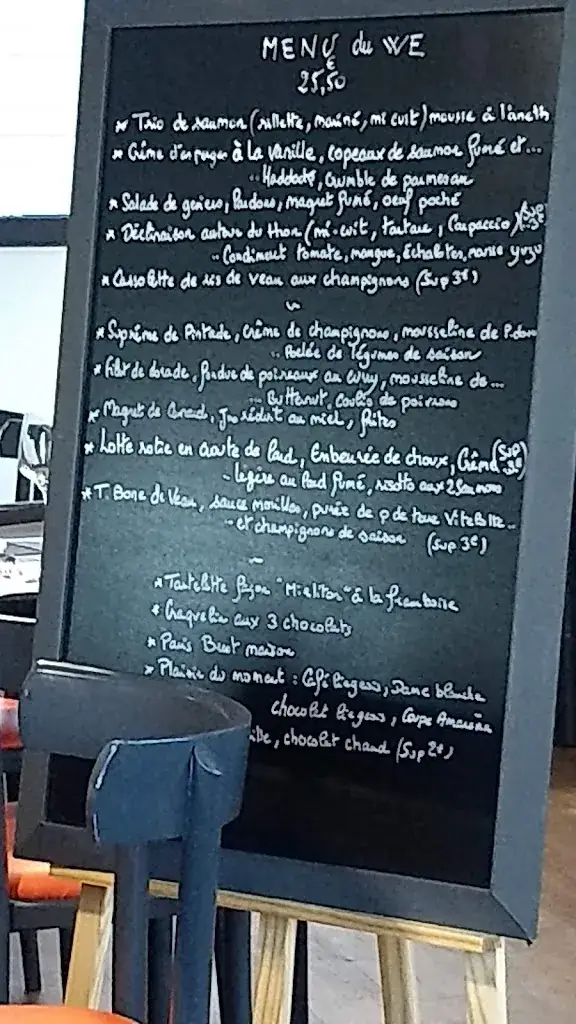 MENU du WE
€
25,50
* Trio de saumon (rillette, mariné, mi cuit) mousse à l'aneth
* Crème d'asperges à la vanille, copeaux de saumon fumé et...
.. Haddock, crumble de parmesan
* Salade de gésiers, lardons, magret fumé, oeuf poché
* Déclinaison autour du thon (mi-cuit, tartare, Carpaccio) (Sup 3€)
.. Condiment tomate, mangue, échalotes, ponzu yuzu
* Cassolette de ris de veau aux champignons (Sup 3€)
~
* Suprême de Pintade, crème de champignons, mousseline de P.douce
.. Poêlée de légumes de saison
* Filet de dorade, fondue de poireaux au curry, mousseline de...
... Butternut, coulis de poivrons
* Magret de Canard, Jus réduit au miel, frites
* Lotte rotie en croute de lard, Embeurrée de choux, Crème (Sup 3€)
- légère au lard fumé, risotto aux 2 saumons
* T. Bone de Veau, sauce morilles, purée de p de terre Vitelotte..
- et champignons de saison (Sup 3€)
~
* Tartelette façon "Mirliton" à la framboise
* Craquelin aux 3 chocolats
* Paris Brest maison
* Plaisir du moment : Café liégeois, Dame blanche
chocolat liégeois, Coupe Amarena
chocolat chaud (Sup 2€)